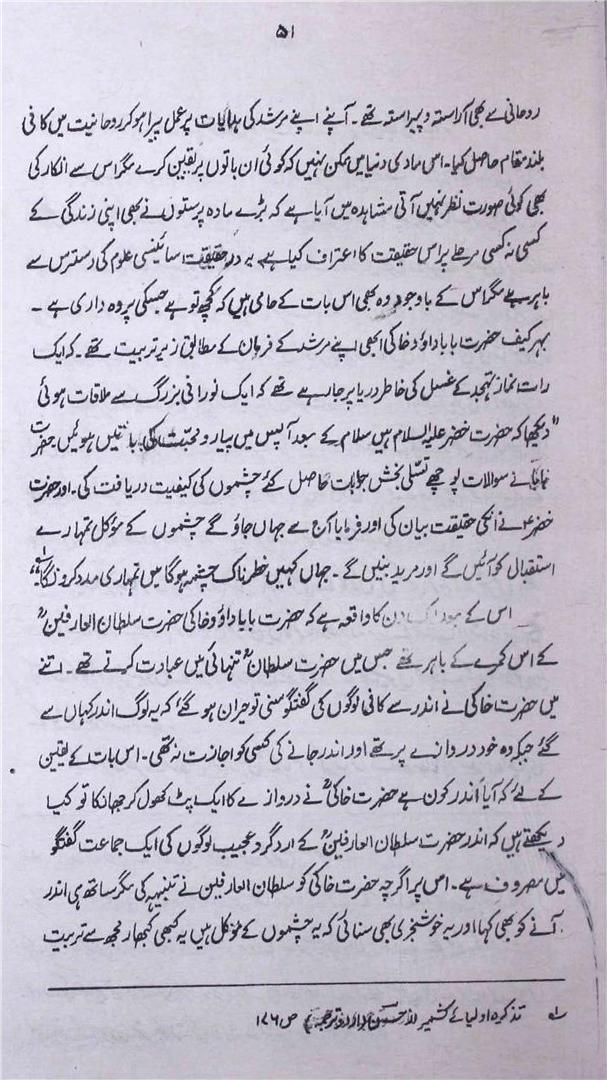 ۵۱
روحانی سے بھی آراستہ و پیراستہ تھے۔ آپنے اپنے مرشد کی ہدایات پر عمل پیرا ہو کر روحانیت میں کافی
بلند مقام حاصل کیا۔ اس مادی دنیا میں ممکن نہیں کہ کوئی ان باتوں پر یقین کرے مگر اس سے انکار کی
بھی کوئی صورت نظر نہیں آتی مشاہدہ میں آیا ہے کہ بڑے مادہ پرستوں نے بھی اپنی زندگی کے
کسی نہ کسی مرحلے پر اس حقیقت کا اعتراف کیا ہے۔ یہ در حقیقت سائینسی علوم کی دسترس سے
باہر ہے مگر اس کے باوجود وہ بھی اس بات کے حامی ہیں کہ کچھ تو ہے جسکی پردہ داری ہے۔
بہر کیف حضرت بابا داؤد خاکی ابھی اپنے مرشد کے فرمان کے مطابق زیر تربیت تھے۔ کہ ایک
رات نماز تہجد کے غسل کی خاطر دریا پر جا رہے تھے کہ ایک نورانی بزرگ سے ملاقات ہوئی
"دیکھا کہ حضرت خضر علیہ السلام ہیں سلام کے بعد آپس میں پیار و محبت کی باتیں ہوئیں حضرت
نے سوالات پوچھے تسلی بخش جوابات حاصل کئے چشموں کی کیفیت دریافت کی۔ اور حضرت
خضرؑ نے انکی حقیقت بیان کی اور فرمایا آج سے جہاں جاؤ گے چشموں کے موکل تمہارے
استقبال کو آئیں گے اور مرید بنیں گے۔ جہاں کہیں خطرناک چشمہ ہوگا میں تمہاری مدد کروں گا"؎۱
اس کے بعد ایک دن کا واقعہ ہے کہ حضرت بابا داؤد خاکی حضرت سلطان العارفینؒ
کے اس کمرے کے باہر تھے جس میں حضرت سلطانؒ تنہائی میں عبادت کرتے تھے۔ اتنے
میں حضرت خاکی نے اندر سے کافی لوگوں کی گفتگو سنی تو حیران ہو گئے کہ یہ لوگ اندر کہاں سے
گئے جبکہ وہ خود دروازے پر تھے اور اندر جانے کی کسی کو اجازت نہ تھی۔ اس بات کے یقین
کے لئے کہ آیا اندر کون ہے حضرت خاکیؒ نے دروازے کا ایک پٹ کھول کر جھانکا تو کیا
دیکھتے ہیں کہ اندر حضرت سلطان العارفینؒ کے ارد گرد عجیب لوگوں کی ایک جماعت گفتگو
میں مصروف ہے۔ اس پر اگرچہ حضرت خاکی کو سلطان العارفین نے تنبیہہ کی مگر ساتھ ہی اندر
آنے کو بھی کہا اور یہ خوشخبری بھی سنائی کہ یہ چشموں کے موکل ہیں یہ کبھی کبھار مجھ سے تربیت
؎۱ تذکرہ اولیائے کشمیر از حسن اردو ترجمہ ص ۱۷۶